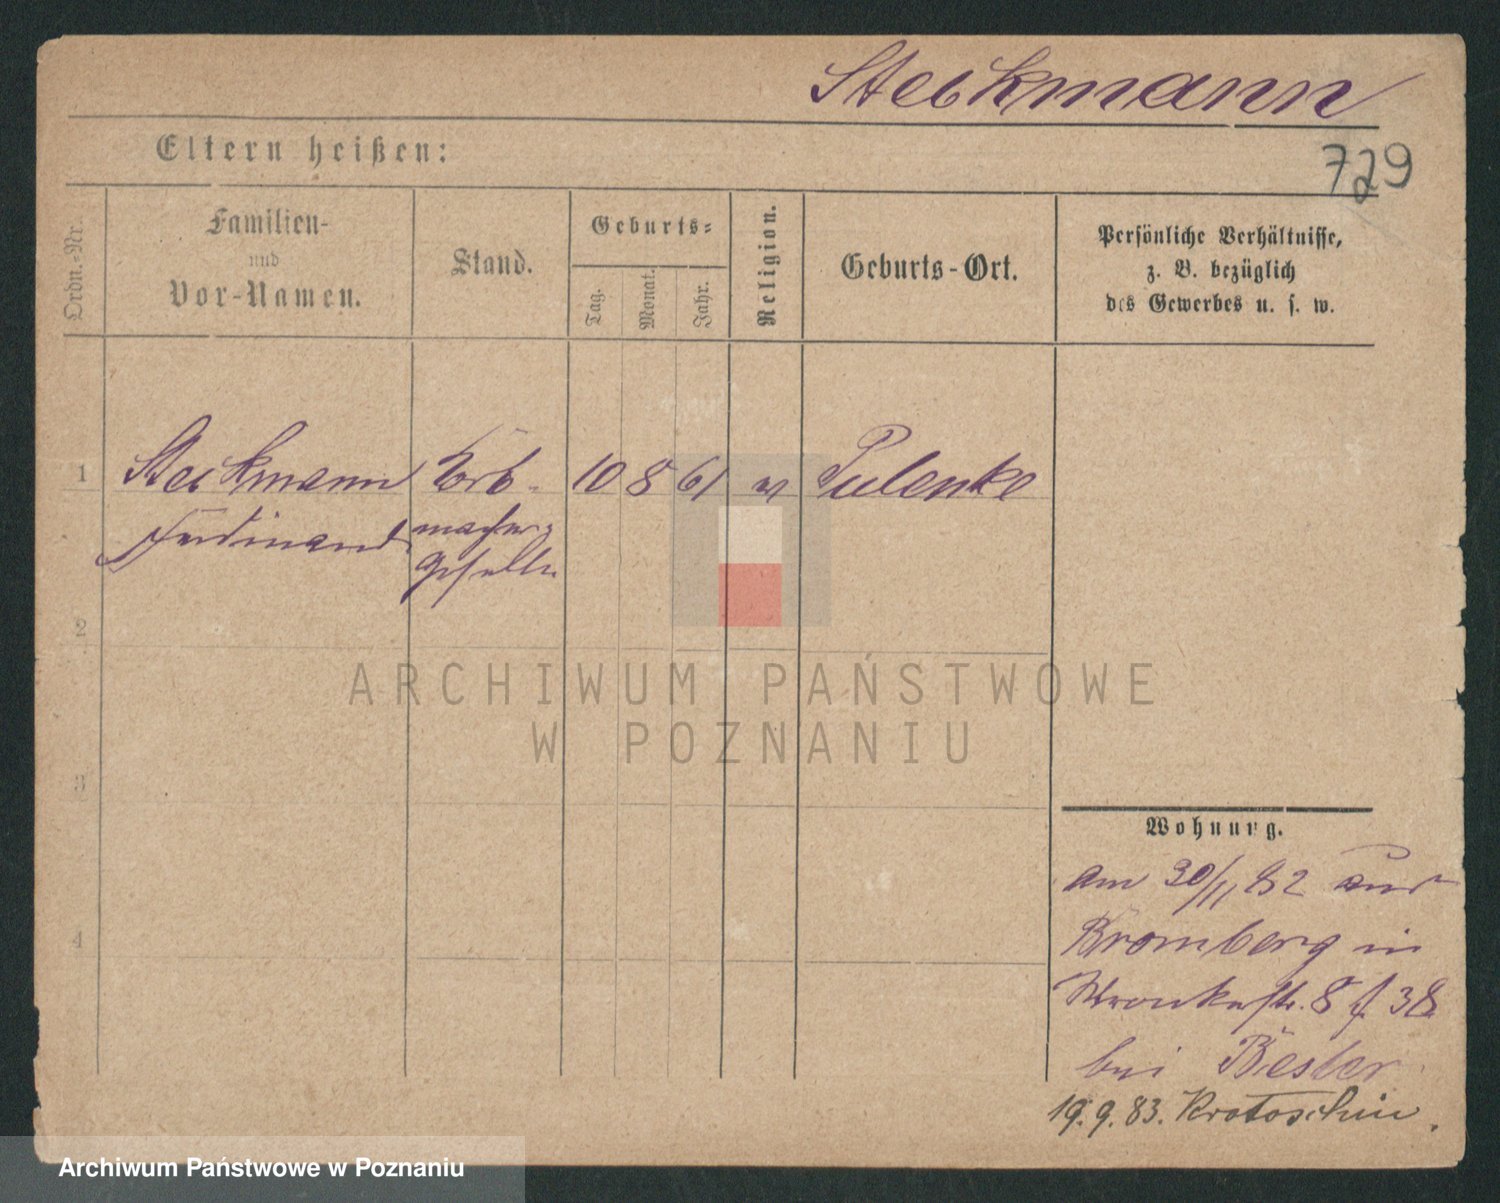 Steckmann
Eltern heißen:
729
Ordn.-Nr.
Familien-
und
Vor-Namen.
Stand.
Geburts-
Tag.
Monat.
Jahr.
Religion.
Geburts-Ort.
Persönliche Verhältnisse,
z. B. bezüglich
des Gewerbes u. s. w.
1 Steckmann Korb- 10 8 61 Pulenke
Ferdinand macher-
geselle
2
3
4
ARCHIWUM PAŃSTWOWE
W POZNANIU
Wohnung.
am 30/11 82 aus
Bromberg in
Wronkerstr. 8 f. 38
bei Bester
19.9.83. Krotoschin.
Archiwum Państwowe w Poznaniu